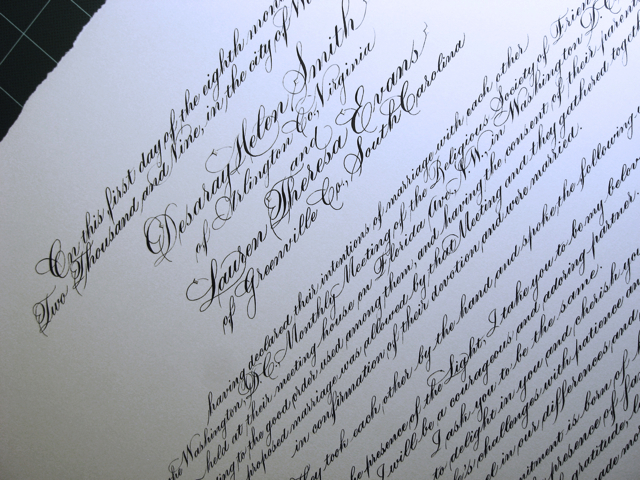 On this first day of the eighth mon
Two Thousand and Nine, in the city of W
Desaray Helen Smith
of Arlington Co., Virginia
and
Lauren Theresa Evans
of Greenville Co., South Carolina
having declared their intentions of marriage with each other
Washington, D.C. Monthly Meeting of the Religious Society of Friend
held at their meeting house on Florida Ave NW in Washington D.C.
ting to the good order used among them, and having the consent of their paren
proposed marriage was allowed by that Meeting and they gathered togeth
in confirmation of their devotion and were married.
they took each other by the hand and spoke the following
he presence of the Light, I take you to be my belov
I will be a courageous and adoring partner
I ask you to be the same.
to delight in you and cherish yo
's challenges with patience a
ce in our differences and
mitment is born of
presence of
gratitude,